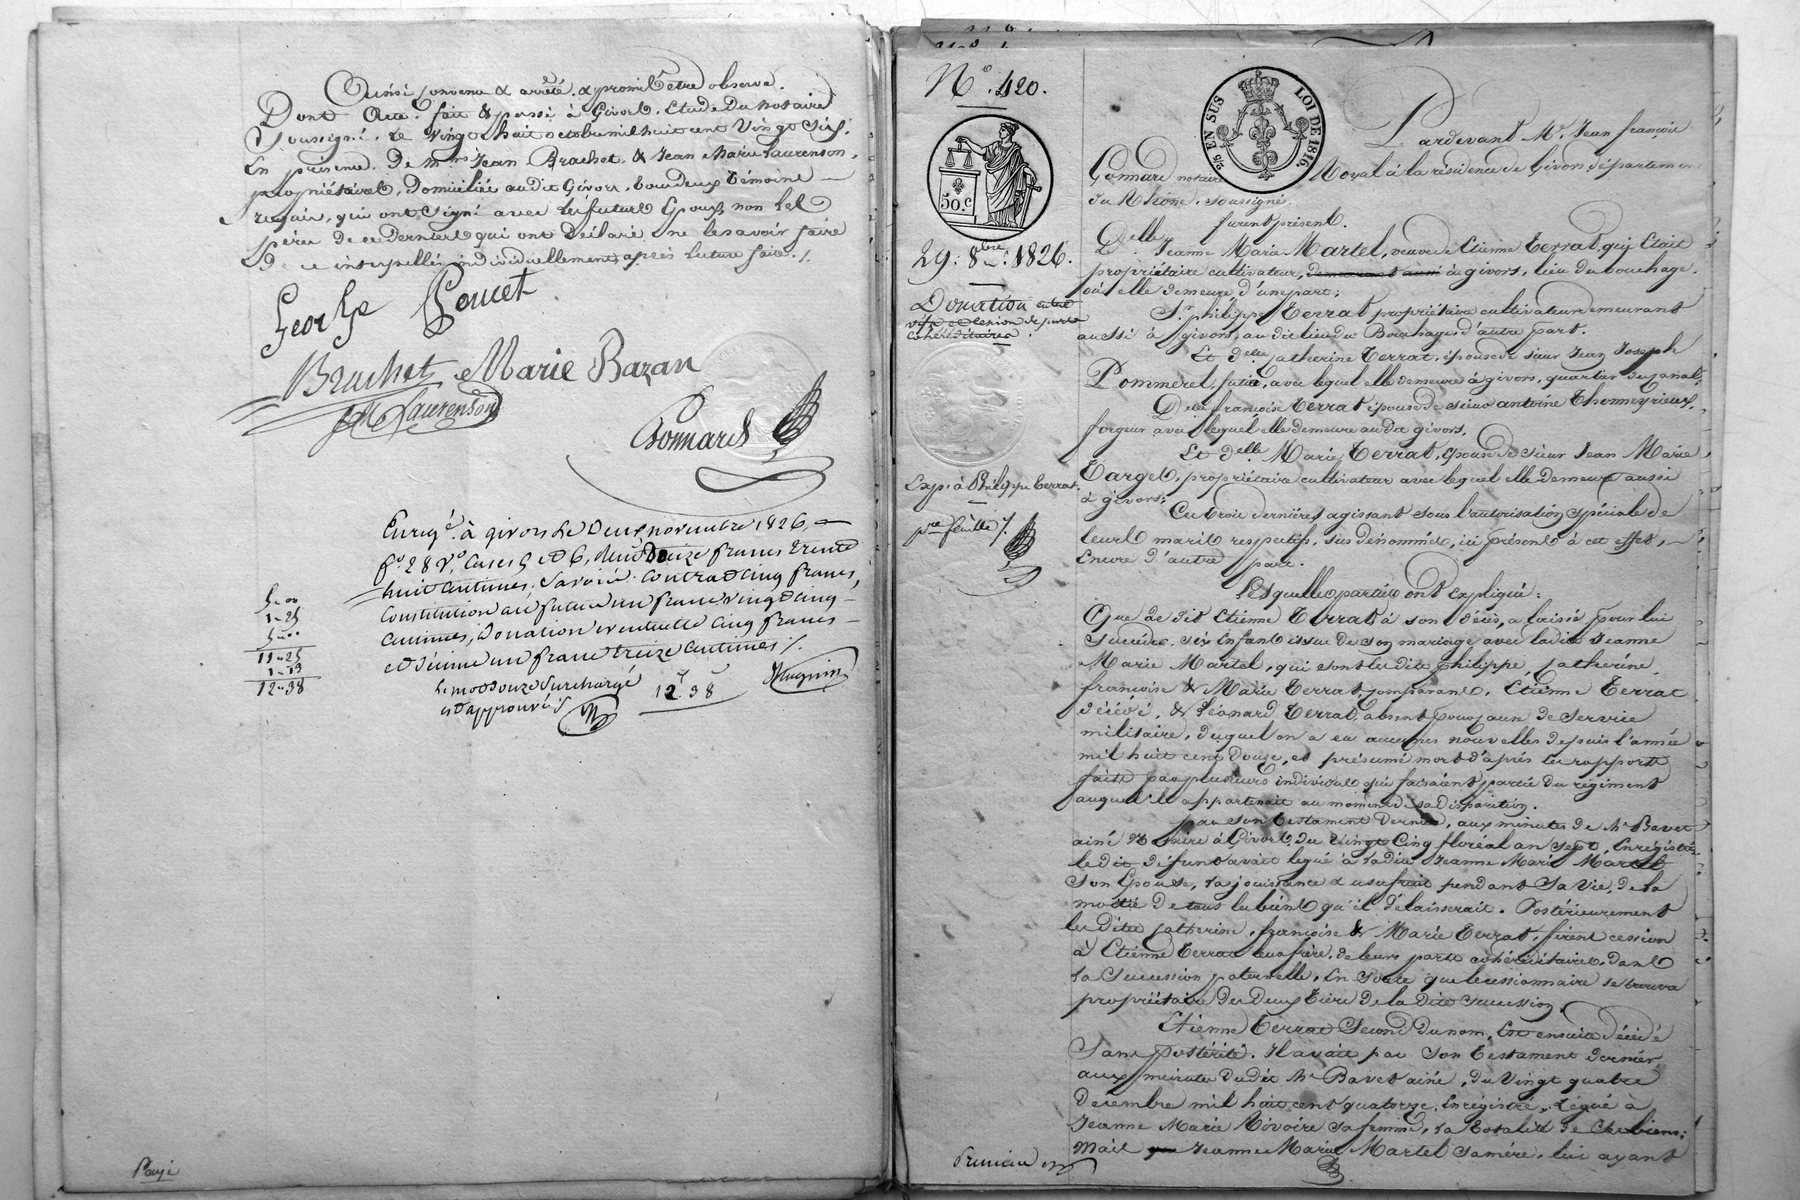 Ainsi convenu & arrêté, & promis être observé.
Dont Acte, fait & passé à Givors, Etude du notaire
Soussigné, le vingt huit octobre mil huit cent vingt six,
En présence de mrs Jean Brachet & Jean Marie Laurenson,
propriétaires, domiciliés audit Givors, tous deux témoins
requis, qui ont signé avec les futurs Epoux, non les
pères de ce dernier qui ont déclaré ne le savoir faire
de ce interpellés individuellement après lecture faite ./.
George Poncet
Brachet Marie Bazan
JM Laurenson
Gonnard
Enregé. à givors le Deux novembre 1826,
fo 28 Vo. Cases 5 et 6, reçu Douze francs trente
huit centimes, savoir: contrat cinq francs,
constitution au futur un franc vingt cinq
centimes, donation éventuelle cinq francs
et dixième un franc treize centimes ./.
5 " 00
1 " 25
5 " 00
11 " 25
1 " 13
12 " 38
le mot douze surchargé
et approuvé
12 38
Payé
No. 420.
26 EN SUS LOI DE 1816.
50.c
29. 8bre. 1826.
Donation entre
vifs et cession de parts
cohéréditaires.
Exp. à Philippe Terrat
pre feuille ./.
Pardevant Me. Jean françois
Gonnard notaire Royal à la résidence de Givors département
du Rhône, soussigné.
furent présent.
Delle Jeanne Marie Martel, veuve de Etienne Terrat, qui était
propriétaire cultivateur, à givors, lieu du bouchage,
où elle demeure, d'une part;
Sr. philippe Terrat propriétaire cultivateur demeurant
aussi à givors, audit lieu du Bouchage, d'autre part.
Et delle Catherine Terrat, épouse de sieur Jean Joseph
Pommeret, avec lequel elle demeure à givors, quartier du canal,
Delle françoise Terrat épouse de sieur antoine Thomeyrieux,
forgeur avec lequel elle demeure audit givors,
Et delle Marie Terrat, épouse de sieur Jean Marie
Targe, propriétaire cultivateur avec lequel elle demeure aussi
à givors;
Ces trois dernières agissant sous l'autorisation spéciale de
leurs maris respectifs, sus dénommés, ici présent à cet effet,
Encore d'autre part.
Lesquelles parties ont expliqué:
Que le dit Etienne Terrat à son décès, a laissé pour lui
succéder six enfants issus de son mariage avec ladite Jeanne
Marie Martel, qui sont lesdits philippe, catherine
françoise & Marie Terrat, comparants, Etienne Terrat
décédé, & Léonard Terrat absent pour cause de service
militaire, duquel on a eu aucunes nouvelles depuis l'année
mil huit cent douze, et présumé mort d'après les rapports
faits par plusieurs individus qui faisaient partie du régiment
auquel il appartenait au moment de sa disparition.
par son testament dernier, aux minutes de Me Bavet
ainé Notaire à Givors, du vingt cinq floréal an sept, Enregistré
le dit défunt avait légué à ladite Jeanne Marie Martel
son Epouse, la jouissance & usufruit pendant sa vie, de la
moitié de tous les biens qu'il délaisserait. Postérieurement
lesdites catherine, françoise & Marie Terrat, firent cession
à Etienne Terrat leur frère, de leurs parts cohéréditaires, dans
la succession paternelle, en sorte que le cessionnaire se trouva
propriétaire des deux tiers de la dite succession.
Etienne Terrat second du nom, est ensuite décédé
sans postérité. Il avait par son testament dernier
aux minutes dudit Me Bavet ainé, du vingt quatre
décembre mil huit cent quatorze, Enrégistré, légué à
Jeanne Marie Rivoire sa femme, la totalité de ses biens;
Mais Jeanne Marie Martel sa mère, lui ayant